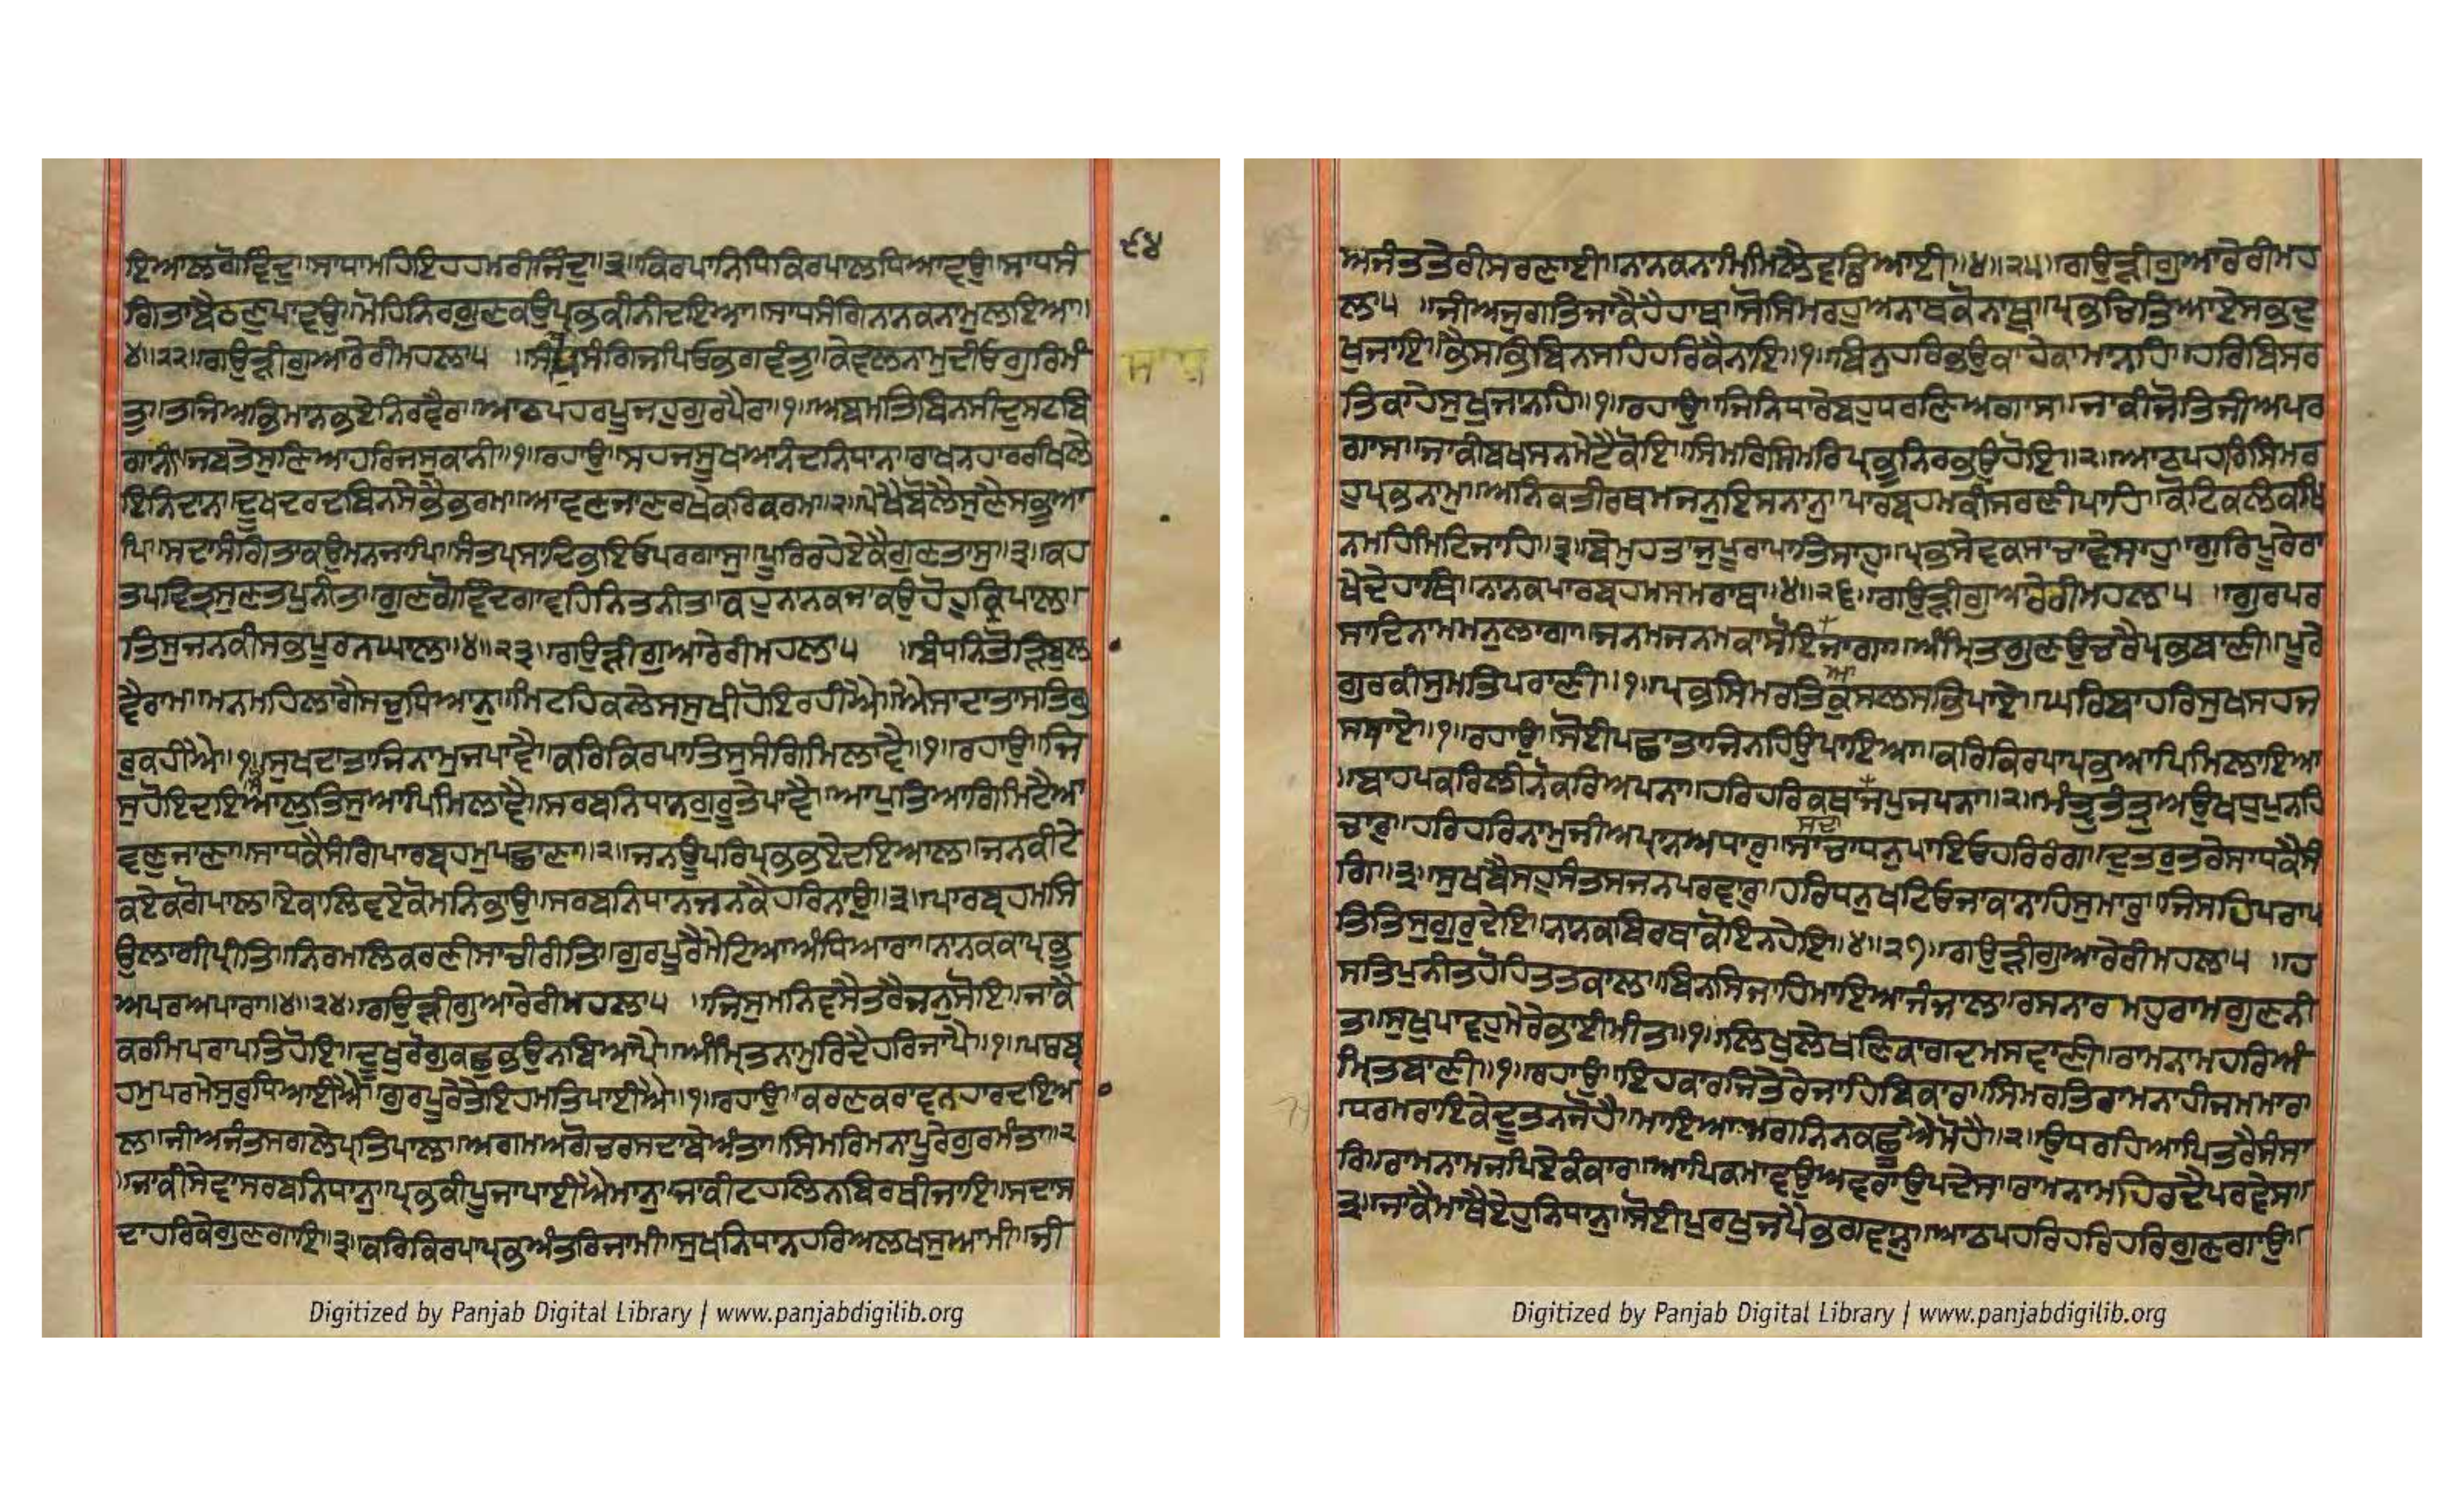 ਇਆਲਗੋਵਿੰਦ॥ਸਾਧਾਮਹਿਇਹਹਮਰੀਜਿੰਦ॥੩॥ਕਿਰਪਾਨਿਧਿਕਿਰਪਾਲਧਿਆਵਉ॥ਸਾਧਸੰ
੯੪
ਗਿਤਾਬੈਠਣੁਪਾਵਉ॥ਮੋਹਿਨਿਰਗੁਣਕਉਪ੍ਰਭਕੀਨੀਦਇਆ॥ਸਾਧਸੰਗਿਨਾਨਕਨਾਮੁਲਇਆ॥
੪॥੨੨॥ਗਉੜੀਗੁਆਰੇਰੀਮਹਲਾ੫ ॥ਸਾਧਸੰਗਿਜਪਿਓਭਗਵੰਤੁ॥ਕੇਵਲਨਾਮੁਦੀਓਗੁਰਿਮੰ
ਤੁ॥ਤਜਿਅਭਿਮਾਨਭਏਨਿਰਵੈਰ॥ਆਠਪਹਰਪੂਜਹੁਗੁਰਪੈਰ॥੧॥ਅਬਮਤਿਬਿਨਸੀਦੁਸਟਬਿ
ਗਾਨੀ॥ਜਬਤੇਸੁਣਿਆਹਰਿਜਸੁਕਾਨੀ॥੧॥ਰਹਾਉ॥ਸਹਜਸੂਖਆਨੰਦਨਿਧਾਨ॥ਰਾਖਨਹਾਰਰਖਿਲੇ
ਇਨਿਦਾਨ॥ਦੂਖਦਰਦਬਿਨਸੇਭੈਭਰਮ॥ਆਵਣਜਾਣਰਖੇਕਰਿਕਰਮ॥੨॥ਪੇਖੈਬੋਲੈਸੁਣੈਸਭੁਆ
ਪਿ॥ਸਦਾਸੰਗਿਤਾਕਉਮਨਜਾਪਿ॥ਸੰਤਪ੍ਰਸਾਦਿਭਇਓਪਰਗਾਸੁ॥ਪੂਰਿਰਹੇਏਕੈਗੁਣਤਾਸੁ॥੩॥ਕਹ
ਤਪਵਿਤ੍ਰਸੁਣਤਪੁਨੀਤ॥ਗੁਣਗੋਵਿੰਦਗਾਵਹਿਨਿਤਨੀਤ॥ਕਹੁਨਾਨਕਜਾਕਉਹੋਹੁਕ੍ਰਿਪਾਲ॥
ਤਿਸੁਜਨਕੀਸਭਪੂਰਨਘਾਲ॥੪॥੨੩॥ਗਉੜੀਗੁਆਰੇਰੀਮਹਲਾ੫ ॥ਬੰਧਨਤੋੜਿਬੁਲਾ
ਵੈਰਾਮੁ॥ਮਨਮਹਿਲਾਗੈਸਚੁਧਿਆਨੁ॥ਮਿਟਹਿਕਲੇਸਸੁਖੀਹੋਇਰਹੀਐ॥ਐਸਾਦਾਤਾਸਤਿਗੁ
ਰੁਕਹੀਐ॥੧॥ਸੁਖਦਾਤਾਜਿਨਾਮੁਜਪਾਵੈ॥ਕਰਿਕਿਰਪਾਤਿਸੁਸੰਗਿਮਿਲਾਵੈ॥੧॥ਰਹਾਉ॥ਜਿ
ਸੁਹੋਇਦਇਆਲੁਤਿਸੁਆਪਿਮਿਲਾਵੈ॥ਸਰਬਨਿਧਾਨਗੁਰੂਤੇਪਾਵੈ॥ਆਪੁਤਿਆਗਿਮਿਟੈਆ
ਵਣਜਾਣਾ॥ਸਾਧਕੈਸੰਗਿਪਾਰਬ੍ਰਹਮੁਪਛਾਣਾ॥੨॥ਜਨਊਪਰਿਪ੍ਰਭਭਏਦਇਆਲ॥ਜਨਕੀਟੇ
ਕਏਕਗੋਪਾਲ॥ਏਕਾਲਿਵਏਕੋਮਨਿਭਾਉ॥ਸਰਬਨਿਧਾਨਜਨਕੈਹਰਿਨਾਉ॥੩॥ਪਾਰਬ੍ਰਹਮਸਿ
ਉਲਾਗੀਪ੍ਰੀਤਿ॥ਨਿਰਮਲਕਰਣੀਸਾਚੀਰੀਤਿ॥ਗੁਰਪੂਰੈਮੇਟਿਆਅੰਧਿਆਰਾ॥ਨਾਨਕਕਾਪ੍ਰਭੁ
ਅਪਰਅਪਾਰਾ॥੪॥੨੪॥ਗਉੜੀਗੁਆਰੇਰੀਮਹਲਾ੫ ॥ਜਿਸੁਮਨਿਵਸੈਤਰੈਜਨੁਸੋਇ॥ਜਾਕੈ
ਕਰਮਿਪਰਾਪਤਿਹੋਇ॥ਦੂਖੁਰੋਗੁਕਛੁਭਉਨਬਿਆਪੈ॥ਅੰਮ੍ਰਿਤਨਾਮੁਰਿਦੈਹਰਿਜਾਪੈ॥੧॥ਪਾਰਬ੍ਰ
ਹਮੁਪਰਮੇਸੁਰੁਧਿਆਈਐ॥ਗੁਰਪੂਰੇਤੇਇਹਮਤਿਪਾਈਐ॥੧॥ਰਹਾਉ॥ਕਰਣਕਰਾਵਨਹਾਰਦਇਆ
ਲ॥ਜੀਅਜੰਤਸਗਲੇਪ੍ਰਤਿਪਾਲ॥ਅਗਮਅਗੋਚਰਸਦਾਬੇਅੰਤਾ॥ਸਿਮਰਿਮਨਾਪੂਰੇਗੁਰਮੰਤਾ॥੨
॥ਜਾਕੀਸੇਵਾਸਰਬਨਿਧਾਨੁ॥ਪ੍ਰਭਕੀਪੂਜਾਪਾਈਐਮਾਨੁ॥ਜਾਕੀਟਹਲਨਬਿਰਥੀਜਾਇ॥ਸਦਾਸ
ਦਾਹਰਿਕੇਗੁਣਗਾਇ॥੩॥ਕਰਿਕਿਰਪਾਪ੍ਰਭਅੰਤਰਿਜਾਮੀ॥ਸੁਖਨਿਧਾਨਹਰਿਅਲਖਸੁਆਮੀ॥ਜੀ
Digitized by Panjab Digital Library | www.panjabdigilib.org
ਅਜੰਤਤੇਰੀਸਰਣਾਈ॥ਨਾਨਕਨਾਮੁਮਿਲੈਵਡਿਆਈ॥੪॥੨੫॥ਗਉੜੀਗੁਆਰੇਰੀਮਹ
ਲਾ੫ ॥ਜੀਅਜੁਗਤਿਜਾਕੈਹੈਹਾਥ॥ਸੋਸਿਮਰਹੁਅਨਾਥਕੋਨਾਥੁ॥ਪ੍ਰਭਚਿਤਿਆਏਸਭੁਦੁ
ਖੁਜਾਇ॥ਭੈਸਭਬਿਨਸਹਿਹਰਿਕੈਨਾਇ॥੧॥ਬਿਨੁਹਰਿਭਉਕਾਹੇਕਾਮਾਨਹਿ॥ਹਰਿਬਿਸਰ
ਤਕਾਹੇਸੁਖੁਜਾਨਹਿ॥੧॥ਰਹਾਉ॥ਜਿਨਿਧਾਰੇਬਹੁਧਰਣਿਅਗਾਸ॥ਜਾਕੀਜੋਤਿਜੀਅਪਰ
ਗਾਸ॥ਜਾਕੀਬਖਸਨਮੇਟੈਕੋਇ॥ਸਿਮਰਿਸਿਮਰਿਪ੍ਰਭੁਨਿਰਭਉਹੋਇ॥੨॥ਆਠਪਹਰਸਿਮਰ
ਹੁਪ੍ਰਭਨਾਮੁ॥ਅਨਿਕਤੀਰਥਮਜਨੁਇਸਨਾਨੁ॥ਪਾਰਬ੍ਰਹਮਕੀਸਰਣੀਪਾਹਿ॥ਕੋਟਿਕਲੰਕਖਿ
ਨਮਹਿਮਿਟਿਜਾਹਿ॥੩॥ਬੇਮੁਹਤਾਜੁਪੂਰਾਪਾਤਿਸਾਹੁ॥ਪ੍ਰਭਸੇਵਕਸਾਚਾਵੇਸਾਹੁ॥ਗੁਰਿਪੂਰੇਰਾ
ਖੇਦੇਹਾਥ॥ਨਾਨਕਪਾਰਬ੍ਰਹਮਸਮਰਾਥ॥੪॥੨੬॥ਗਉੜੀਗੁਆਰੇਰੀਮਹਲਾ੫ ॥ਗੁਰਪਰ
ਸਾਦਿਨਾਮਮਨੁਲਾਗਾ॥ਜਨਮਜਨਮਕਾਸੋਇਆਜਾਗਾ॥ਅੰਮ੍ਰਿਤਗੁਣਉਚਰੈਪ੍ਰਭਬਾਣੀ॥ਪੂਰੇ
ਗੁਰਕੀਸੁਮਤਿਪਰਾਣੀ॥੧॥ਪ੍ਰਭਸਿਮਰਤਕੁਸਲਸਭਿਪਾਏ॥ਘਰਿਬਾਹਰਿਸੁਖਸਹਜ
ਸਬਾਏ॥੧॥ਰਹਾਉ॥ਸੋਈਪਛਾਤਾਜਿਨਹਿਉਪਾਇਆ॥ਕਰਿਕਿਰਪਾਪ੍ਰਭਆਪਿਮਿਲਾਇਆ
॥ਬਾਹਪਕਰਿਲੀਨੋਕਰਿਅਪਨਾ॥ਹਰਿਹਰਿਕਥਾਜਪੁਜਪਨਾ॥੨॥ਮੰਤ੍ਰੁਤੰਤ੍ਰੁਅਉਖਧੁਪੁਨਹ
ਸਦਾ
ਚਾਰੁ॥ਹਰਿਹਰਿਨਾਮੁਜੀਅਪ੍ਰਾਨਅਧਾਰੁ॥ਸਾਚਾਧਨੁਪਾਇਓਹਰਿਰੰਗਿ॥ਦੁਤਰੁਤਰੇਸਾਧਕੈਸੰ
ਗਿ॥੩॥ਸੁਖਿਬੈਸਹੁਸੰਤਸਜਨਪਰਵਾਰੁ॥ਹਰਿਧਨੁਖਟਿਓਜਾਕਾਨਾਹਿਸੁਮਾਰੁ॥ਜਿਸਹਿਪਰਾਪ
ਤਿਤਿਸੁਗੁਰੁਦੇਇ॥ਨਾਨਕਬਿਰਥਾਕੋਇਨਹੇਇ॥੪॥੨੭॥ਗਉੜੀਗੁਆਰੇਰੀਮਹਲਾ੫ ॥ਹ
ਸਤਪੁਨੀਤਹੋਹਿਤਤਕਾਲ॥ਬਿਨਸਿਜਾਹਿਮਾਇਆਜੰਜਾਲ॥ਰਸਨਾਰਮਹੁਰਾਮਗੁਣਨੀ
ਤ॥ਸੁਖੁਪਾਵਹੁਮੇਰੇਭਾਈਮੀਤ॥੧॥ਲਿਖੁਲੇਖਣਿਕਾਗਦਿਮਸਵਾਣੀ॥ਰਾਮਨਾਮਹਰਿਅੰ
ਮ੍ਰਿਤਬਾਣੀ॥੧॥ਰਹਾਉ॥ਇਹਕਾਰਜਿਤੇਰੇਜਾਹਿਬਿਕਾਰ॥ਸਿਮਰਤਰਾਮਨਾਹੀਜਮਮਾਰ॥
ਧਰਮਰਾਇਕੇਦੂਤਨਜੋਹੈ॥ਮਾਇਆਮਗਨਨਕਛੂਐਮੋਹੈ॥੨॥ਉਧਰਹਿਆਪਿਤਰੈਸੰਸਾ
ਰੁ॥ਰਾਮਨਾਮਜਪਿਏਕੰਕਾਰੁ॥ਆਪਿਕਮਾਵਉਅਵਰਾਉਪਦੇਸ॥ਰਾਮਨਾਮਹਿਰਦੈਪਰਵੇਸ॥
੩॥ਜਾਕੈਮਾਥੈਏਹੁਨਿਧਾਨੁ॥ਸੋਈਪੁਰਖੁਜਪੈਭਗਵਾਨੁ॥ਆਠਪਹਰਹਰਿਹਰਿਗੁਣਗਾਉ॥
Digitized by Panjab Digital Library | www.panjabdigilib.org